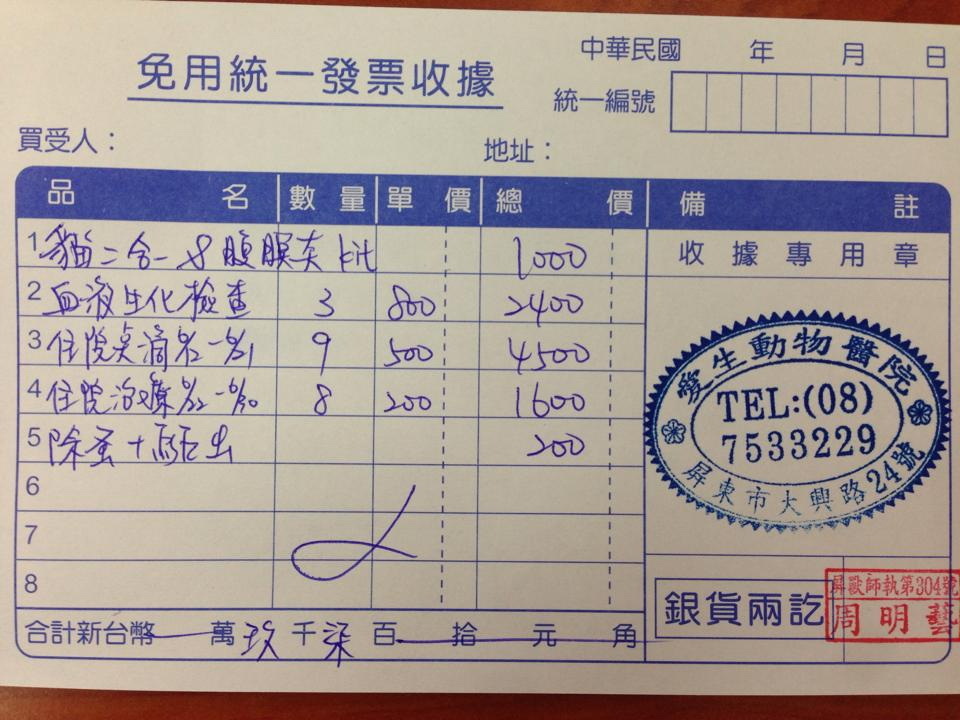 免用統一發票收據
中華民國 年 月 日
統一編號
買受人：
地址：
品名 數量 單價 總價 備註
1 貓二合一 腹膜炎 kit 1000
2 血液生化檢查 3 800 2400
3 住院點滴 9 500 4500
4 住院治療 8 200 1600
5 除蚤+驅虫 200
6
7
8
合計新台幣 萬 玖 千 柒 百 拾 元 角
收據專用章
愛生動物醫院
TEL:(08)
7533229
屏東市大興路24號
銀貨兩訖
屏獸師執第304號
周明藝